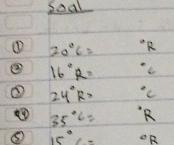 Soal
① 20°C = °R
② 16°R = °C
③ 24°R = °C
④ 35°C = °R
⑤ 15°C = °R